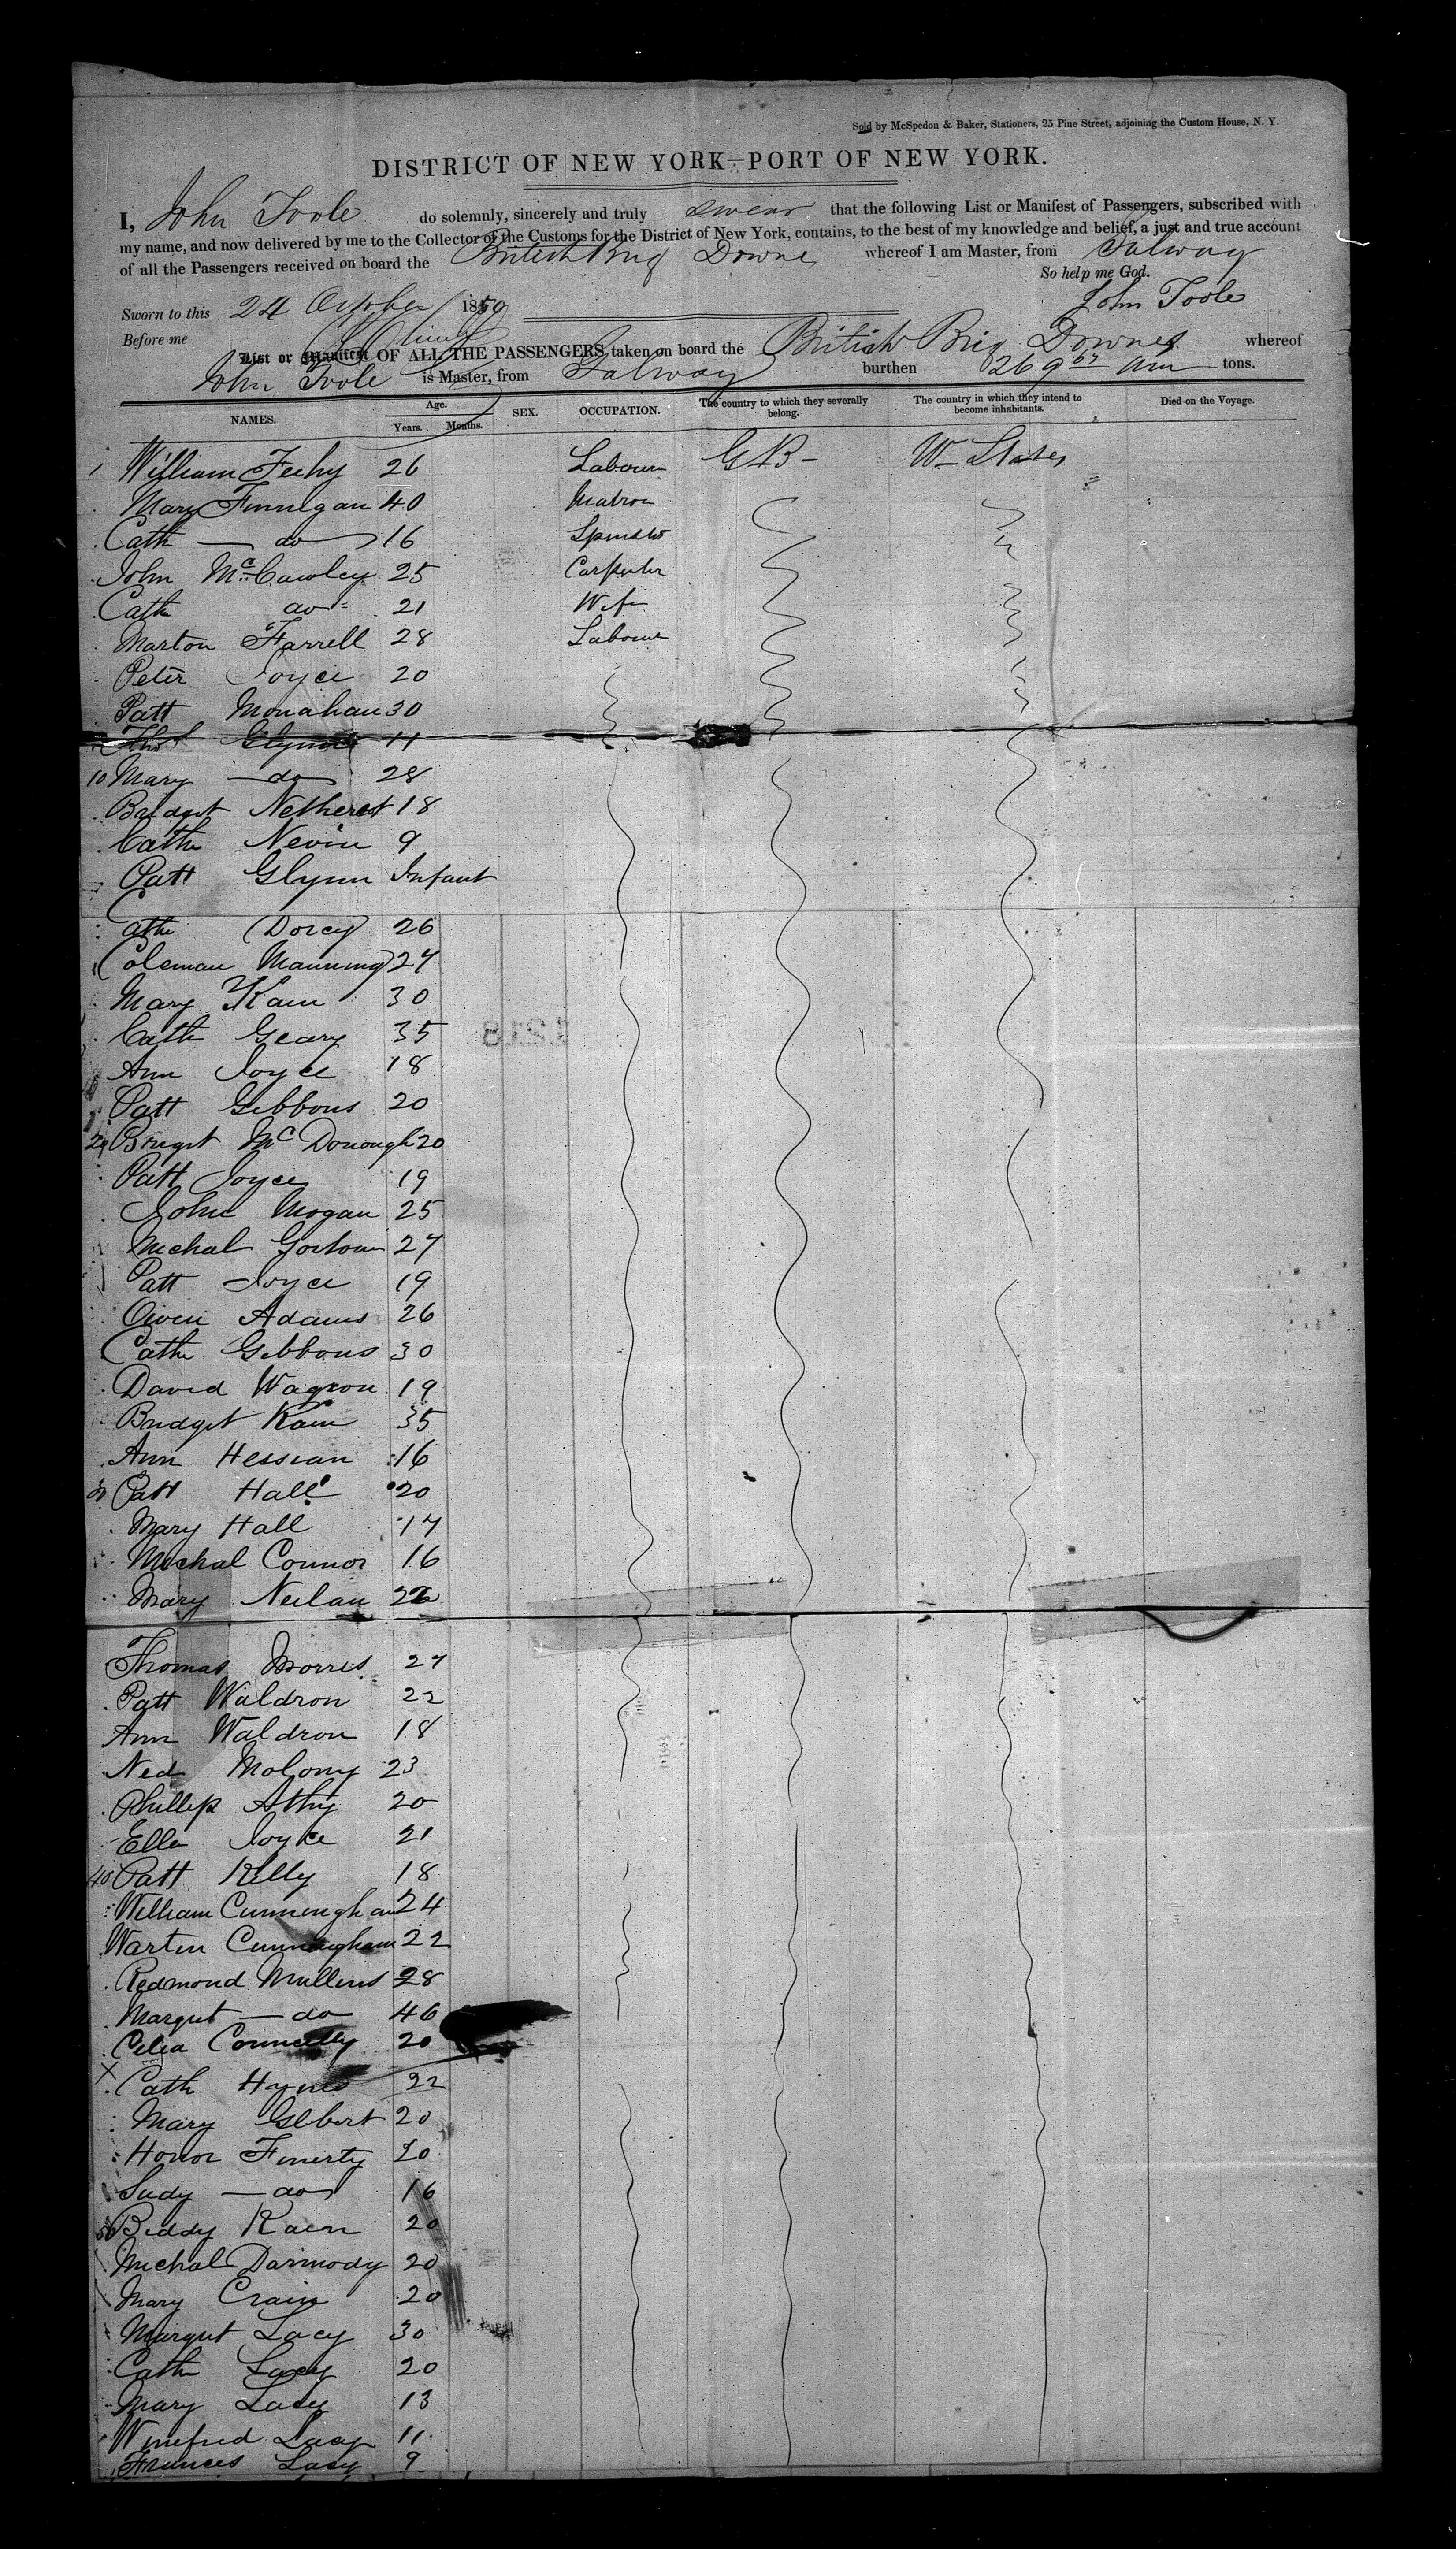 Sold by McSpedon & Baker, Stationers, 25 Pine Street, adjoining the Custom House, N. Y.
DISTRICT OF NEW YORK—PORT OF NEW YORK.
I, John Toole do solemnly, sincerely and truly swear that the following List or Manifest of Passengers, subscribed with
my name, and now delivered by me to the Collector of the Customs for the District of New York, contains, to the best of my knowledge and belief, a just and true account
of all the Passengers received on board the British Brig Downes whereof I am Master, from Galway
So help me God.
Sworn to this 24 October 1850 John Toole
Before me
List or Manifest OF ALL THE PASSENGERS taken on board the British Brig Downes whereof
John Toole is Master, from Galway burthen 269 67 Am tons.
NAMES. Age. Years. Months. SEX. OCCUPATION. The country to which they severally belong. The country in which they intend to become inhabitants. Died on the Voyage.
1 William Feehy 26 Labourer G B - U States
Mary Finnegan 40 Matron
Cath — do 16 Spinster
John McCawley 25 Carpenter
Cath do 21 Wife
Marton Farrell 28 Labourer
Peter Joyce 20
Patt Monahan 30
Thos Glynn 11
10 Mary — do 28
Bridget Netherest 18
Cathe Nevin 9
Patt Glynn Infant
Cathe Dorcy 26
Coleman Manning 27
Mary Kain 30
Cath Geary 35
Ann Joyce 18
Patt Gibbons 20
20 Briget McDonough 20
Patt Joyce 19
John Mogan 25
Michal 27
Patt Joyce 19
Owen Adams 26
Cathe Gibbons 30
David Wagron 19
Bridget Kain 35
Ann Hessian 16
30 Patt Hall 20
Mary Hall 17
Michal Connor 16
Mary Neilan 26
Thomas Morris 27
Patt Waldron 22
Ann Waldron 18
Ned Molony 23
Phillip Athy 20
Ellen Joyce 21
40 Patt Kelly 18
William Cunningham 24
Martin Cunningham 22
Redmond Mullens 28
Margret — do 46
Celia Connelly 20
X Cath Hynes 22
Mary Gilbert 20
Honor Finerty 20
Judy — do 16
50 Biddy Kain 20
Michal Darmody 20
Mary Crain 20
Margret Lacy 30
Cathe Lacy 20
Mary Lacy 13
Winefred Lacy 11
Frances Lacy 9